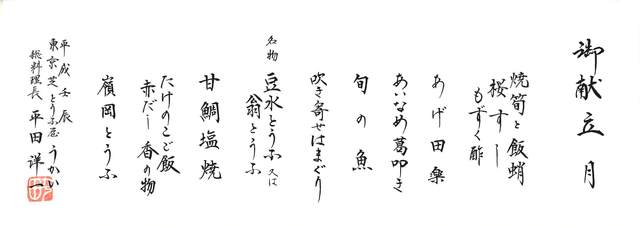 御献立 月
焼筍と飯蛸
桜すし
もずく酢
あげ田楽
あいなめ葛叩き
旬の魚
吹き寄せはまぐり
名物 豆水とうふ 又は
翁とうふ
甘鯛塩焼
たけのこご飯
赤だし 香の物
嶺岡とうふ
平成壬辰
東京芝とうふ屋うかい
総料理長 平田洋一